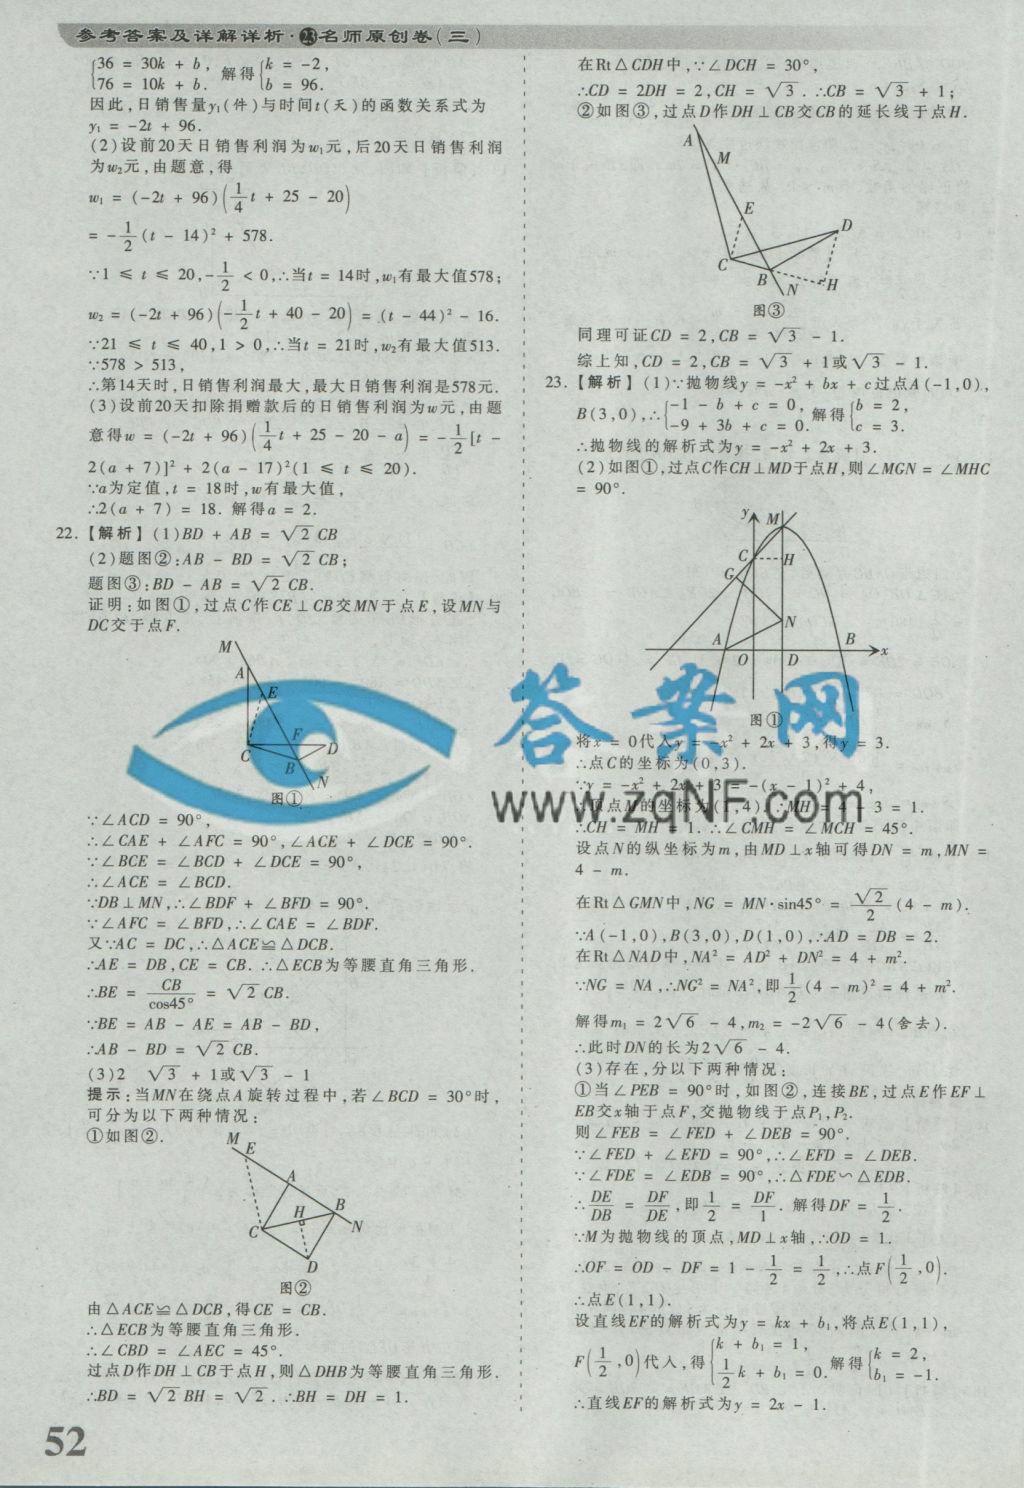 参考答案及详解详析·23名师原创卷(三)
{36 = 30k + b, 76 = 10k + b. 解得{k = -2, b = 96.
因此,日销售量y₁(件)与时间t(天)的函数关系式为
y₁ = -2t + 96.
(2)设前20天日销售利润为w₁元,后20天日销售利润
为w₂元,由题意,得
w₁ = (-2t + 96)(1/4 t + 25 - 20)
= -1/2 (t - 14)² + 578.
∵1 ≤ t ≤ 20,-1/2 < 0,∴当t = 14时,w₁有最大值578;
w₂ = (-2t + 96)(-1/2 t + 40 - 20) = (t - 44)² - 16.
∵21 ≤ t ≤ 40,1 > 0,∴当t = 21时,w₂有最大值513.
∵578 > 513,
∴第14天时,日销售利润最大,最大日销售利润是578元.
(3)设前20天扣除捐赠款后的日销售利润为w元,由题
意得w = (-2t + 96)(1/4 t + 25 - 20 - a) = -1/2 [t -
2(a + 7)]² + 2(a - 17)²(1 ≤ t ≤ 20).
∵a为定值,t = 18时,w有最大值,
∴2(a + 7) = 18. 解得a = 2.
22.【解析】(1)BD + AB = √2 CB
(2)题图②:AB - BD = √2 CB;
题图③:BD - AB = √2 CB.
证明:如图①,过点C作CE⊥CB交MN于点E,设MN与
DC交于点F.
M
A
E
F
C
D
B
N
图①
∵∠ACD = 90°,
∴∠CAE + ∠AFC = 90°,∠ACE + ∠DCE = 90°.
∵∠BCE = ∠BCD + ∠DCE = 90°,
∴∠ACE = ∠BCD.
∵DB⊥MN,∴∠BDF + ∠BFD = 90°.
∵∠AFC = ∠BFD,∴∠CAE = ∠BDF.
又∵AC = DC,∴△ACE≌△DCB.
∴AE = DB,CE = CB. ∴△ECB为等腰直角三角形.
∴BE = CB/cos45° = √2 CB.
∵BE = AB - AE = AB - BD,
∴AB - BD = √2 CB.
(3)2 √3 + 1或√3 - 1
提示:当MN在绕点A旋转过程中,若∠BCD = 30°时,
可分为以下两种情况:
①如图②.
M
E
A
H
B
C
N
D
图②
由△ACE≌△DCB,得CE = CB.
∴△ECB为等腰直角三角形.
∴∠CBD = ∠AEC = 45°.
过点D作DH⊥CB于点H,则△DHB为等腰直角三角形.
∴BD = √2 BH = √2. ∴BH = DH = 1.
52
在Rt△CDH中,∵∠DCH = 30°,
∴CD = 2DH = 2,CH = √3. ∴CB = √3 + 1;
②如图③,过点D作DH⊥CB交CB的延长线于点H.
A
M
E
D
C
B
N
H
图③
同理可证CD = 2,CB = √3 - 1.
综上知,CD = 2,CB = √3 + 1或√3 - 1.
23.【解析】(1)∵抛物线y = -x² + bx + c过点A(-1,0),
B(3,0),∴{-1 - b + c = 0, -9 + 3b + c = 0. 解得{b = 2, c = 3.
∴抛物线的解析式为y = -x² + 2x + 3.
(2)如图①,过点C作CH⊥MD于点H,则∠MGN = ∠MHC
= 90°.
y
M
C
H
G
N
A
B
O
D
x
图①
将x = 0代入y = -x² + 2x + 3,得y = 3.
∴点C的坐标为(0,3).
∵y = -x² + 2x + 3 = -(x - 1)² + 4,
∴顶点M的坐标为(1,4). ∴MH = 4 - 3 = 1.
∴CH = MH = 1. ∴∠CMH = ∠MCH = 45°.
设点N的纵坐标为m,由MD⊥x轴可得DN = m,MN =
4 - m.
在Rt△GMN中,NG = MN·sin45° = √2/2 (4 - m).
∵A(-1,0),B(3,0),D(1,0),∴AD = DB = 2.
在Rt△NAD中,NA² = AD² + DN² = 4 + m².
∵NG = NA,∴NG² = NA²,即1/2 (4 - m)² = 4 + m².
解得m₁ = 2√6 - 4,m₂ = -2√6 - 4(舍去).
∴此时DN的长为2√6 - 4.
(3)存在,分以下两种情况:
①当∠PEB = 90°时,如图②,连接BE,过点E作EF⊥
EB交x轴于点F,交抛物线于点P₁,P₂.
则∠FEB = ∠FED + ∠DEB = 90°.
∵∠FED + ∠EFD = 90°,∴∠EFD = ∠DEB.
∵∠FDE = ∠EDB = 90°,∴△FDE∽△EDB.
∴DE/DB = DF/DE,即1/2 = DF/1. 解得DF = 1/2.
∵M为抛物线的顶点,MD⊥x轴,∴OD = 1.
∴OF = OD - DF = 1 - 1/2 = 1/2,∴点F(1/2,0).
∴点E(1,1).
设直线EF的解析式为y = kx + b₁,将点E(1,1),
F(1/2,0)代入,得{k + b₁ = 1, 1/2 k + b₁ = 0. 解得{k = 2, b₁ = -1.
∴直线EF的解析式为y = 2x - 1.
答案网
www.zqNF.com